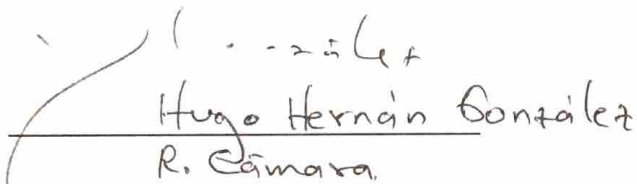 Hugo Hernán González
R. Cámara.